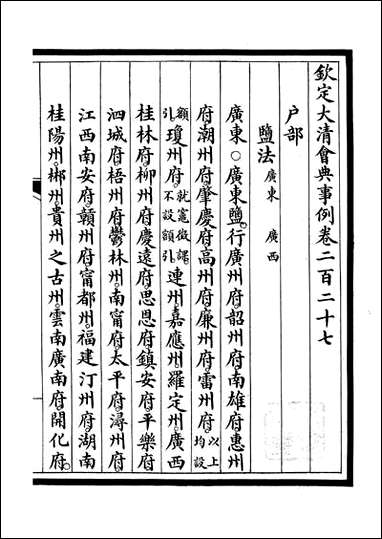 欽定大清會典事例卷二百二十七
户部
鹽法廣東 廣西
廣東○廣東鹽行廣州府韶州府南雄府惠州
府潮州府肇慶府高州府廉州府雷州府以上均設
額引瓊州府就竈徵課不設額引連州嘉應州羅定州廣西
桂林府柳州府慶遠府思恩府鎮安府平樂府
泗城府梧州府鬱林州南甯府太平府潯州府
江西南安府贛州府甯都州福建汀州府湖南
桂陽州郴州貴州之古州雲南廣南府開化府